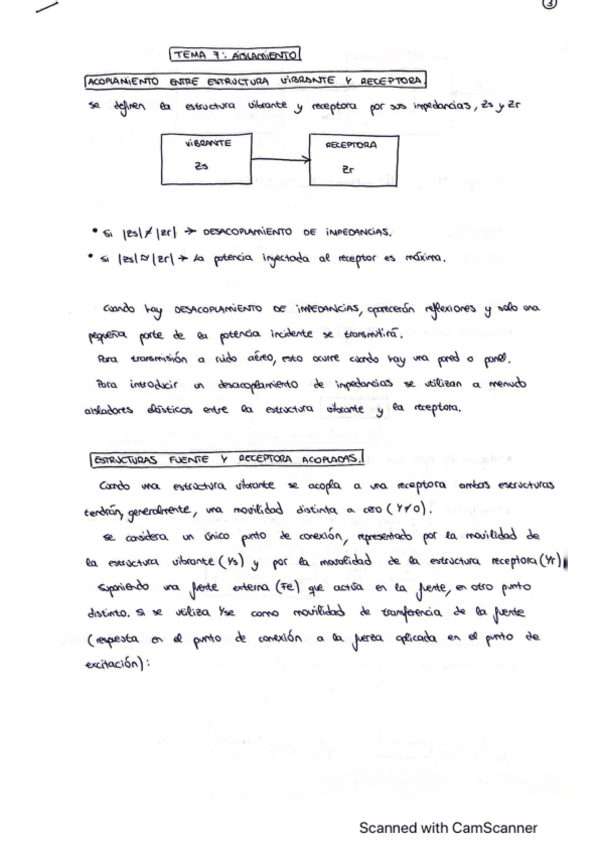 3
TEMA 7: AISLAMIENTO
ACOPLAMIENTO ENTRE ESTRUCTURA VIBRANTE Y RECEPTORA
Se definen la estructura vibrante y receptora por sus impedancias, Zs y Zr
VIBRANTE
Zs
RECEPTORA
Zr
• Si |Zs| ≠ |Zr| → DESACOPLAMIENTO DE IMPEDANCIAS.
• Si |Zs| ≈ |Zr| → La potencia inyectada al receptor es máxima.
Cuando hay DESACOPLAMIENTO DE IMPEDANCIAS, aparecerán reflexiones y solo una
pequeña parte de la potencia incidente se transmitirá.
Para transmisión a ruido aéreo, esto ocurre cuando hay una pared o panel.
Para introducir un desacoplamiento de impedancias se utilizan a menudo
aisladores elásticos entre la estructura vibrante y la receptora.
ESTRUCTURAS FUENTE Y RECEPTORA ACOPLADAS.
Cuando una estructura vibrante se acopla a una receptora ambas estructuras
tendrán, generalmente, una movilidad distinta a cero (Y≠0).
Se considera un único punto de conexión, representado por la movilidad de
la estructura vibrante (Ys) y por la movilidad de la estructura receptora (Yr)
Suponiendo una fuente externa (Fe) que actúa en la fuente, en otro punto
distinto. Si se utiliza Yse como movilidad de transferencia de la fuente
(respuesta en el punto de conexión a la fuerza aplicada en el punto de
excitación):
Scanned with CamScanner